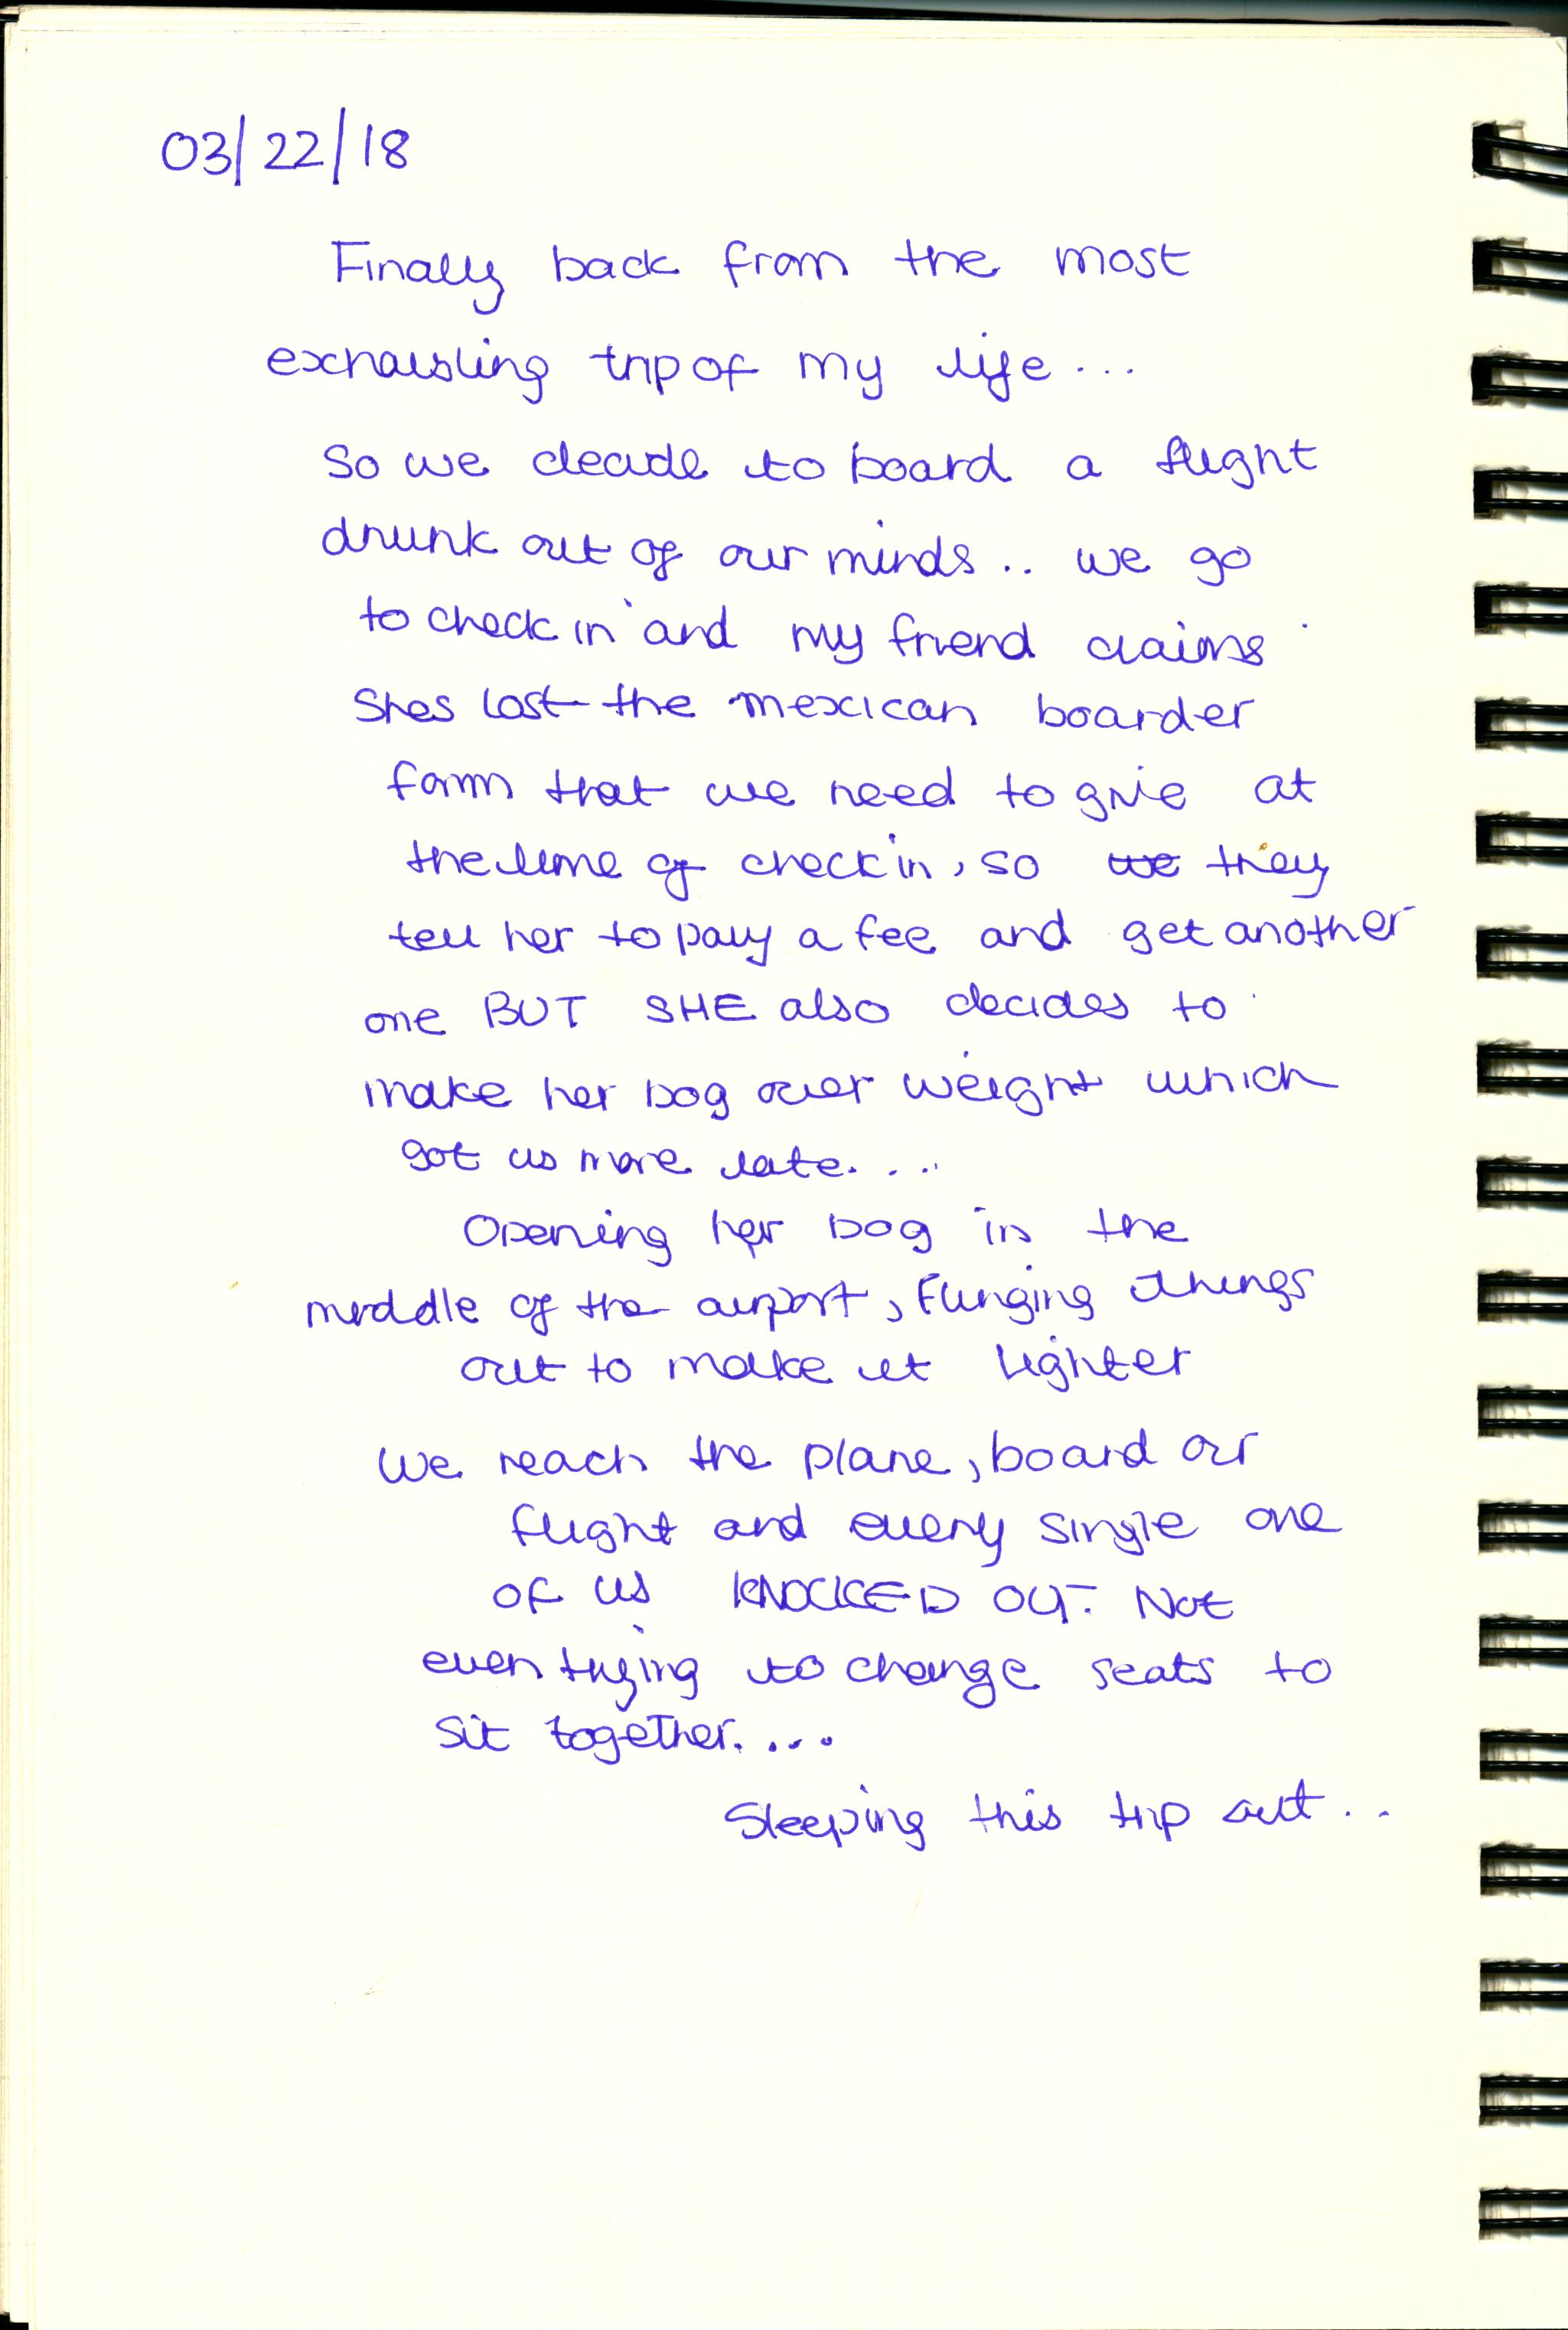 03/22/18
Finally back from the most
exhausting trip of my life...
So we decide to board a flight
drunk out of our minds.. we go
to check in and my friend claims
Shes lost the mexican boarder
form that we need to give at
the time of check in, so we they
tell her to pay a fee and get another
one BUT SHE also decides to
make her bag over weight which
got us more late....
Opening her bag in the
middle of the airport, Flunging things
out to make it lighter
We reach the plane, board our
flight and every single one
of us KNOCKED OUT. Not
even trying to change seats to
sit together....
Sleeping this trip out..